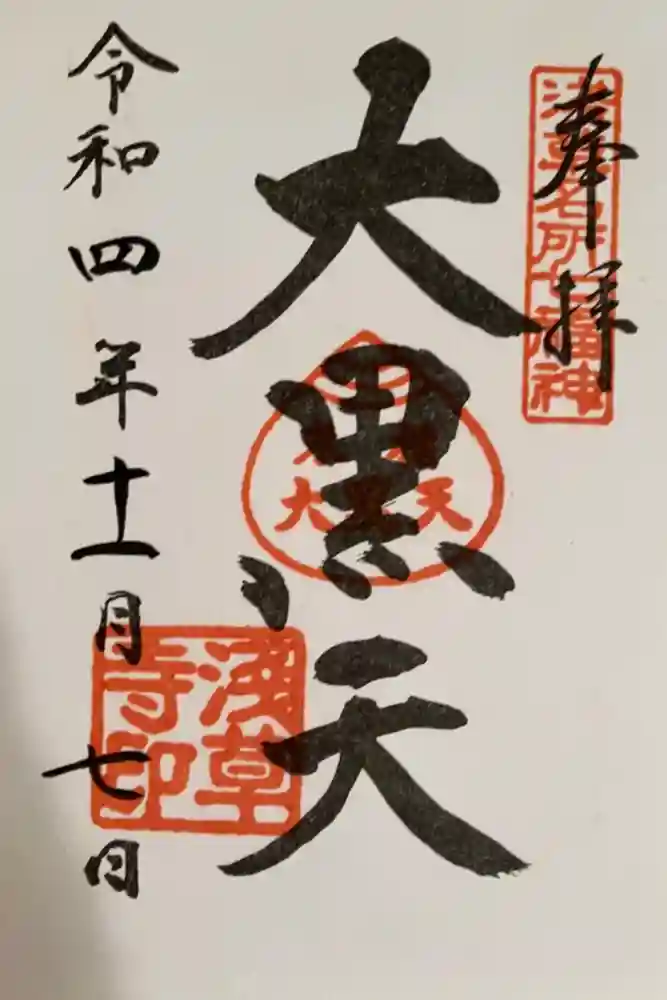 奉拝
浅草名所七福神
大黒天
大黒天
浅草
寺印
令和四年十一月七日